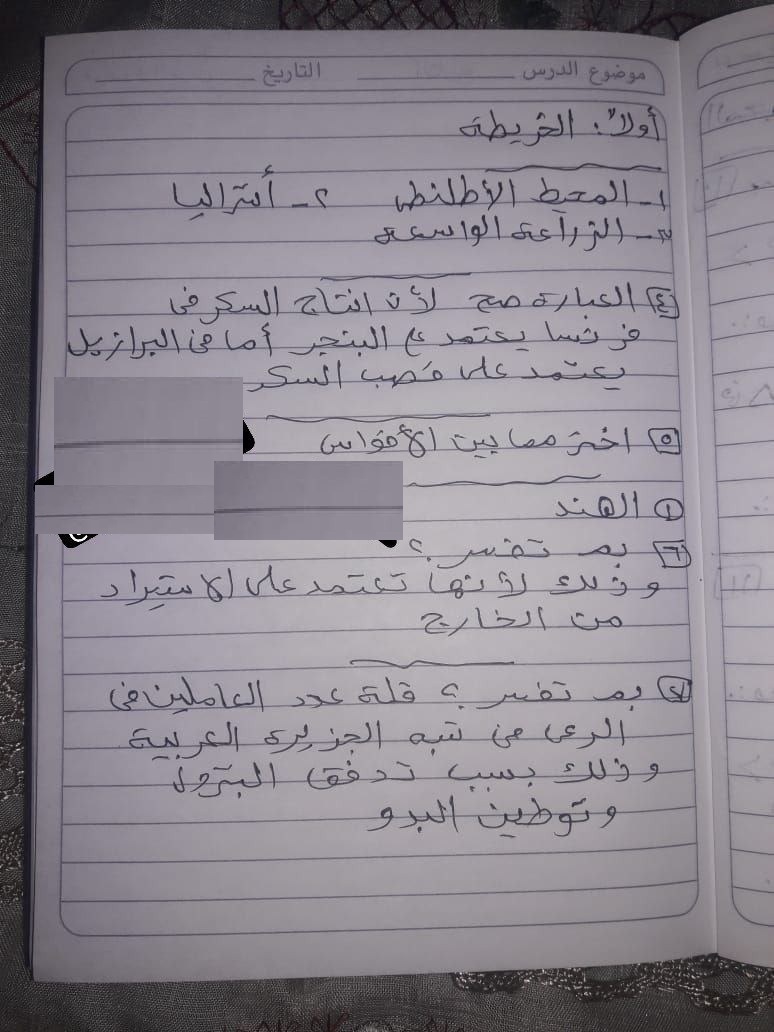 موضوع الدرس التاريخ
أولاً: الخريطة
١- المحيط الأطلنطى ٢- أستراليا
٣- الزراعة الواسعة
٤ العبارة صح لأن انتاج السكر فى
فرنسا يعتمد ع البنجر أما فى البرازيل
يعتمد على قصب السكر
٥ اختر مما بين الأقواس
١ الهند
٦ بم تفسر ؟
وذلك لأنها تعتمد على الاستيراد
من الخارج
٧ بم تفسر ؟ قلة عدد العاملين فى
الرعى فى شبه الجزيرة العربية
وذلك بسبب تدفق البترول
وتوطين البدو